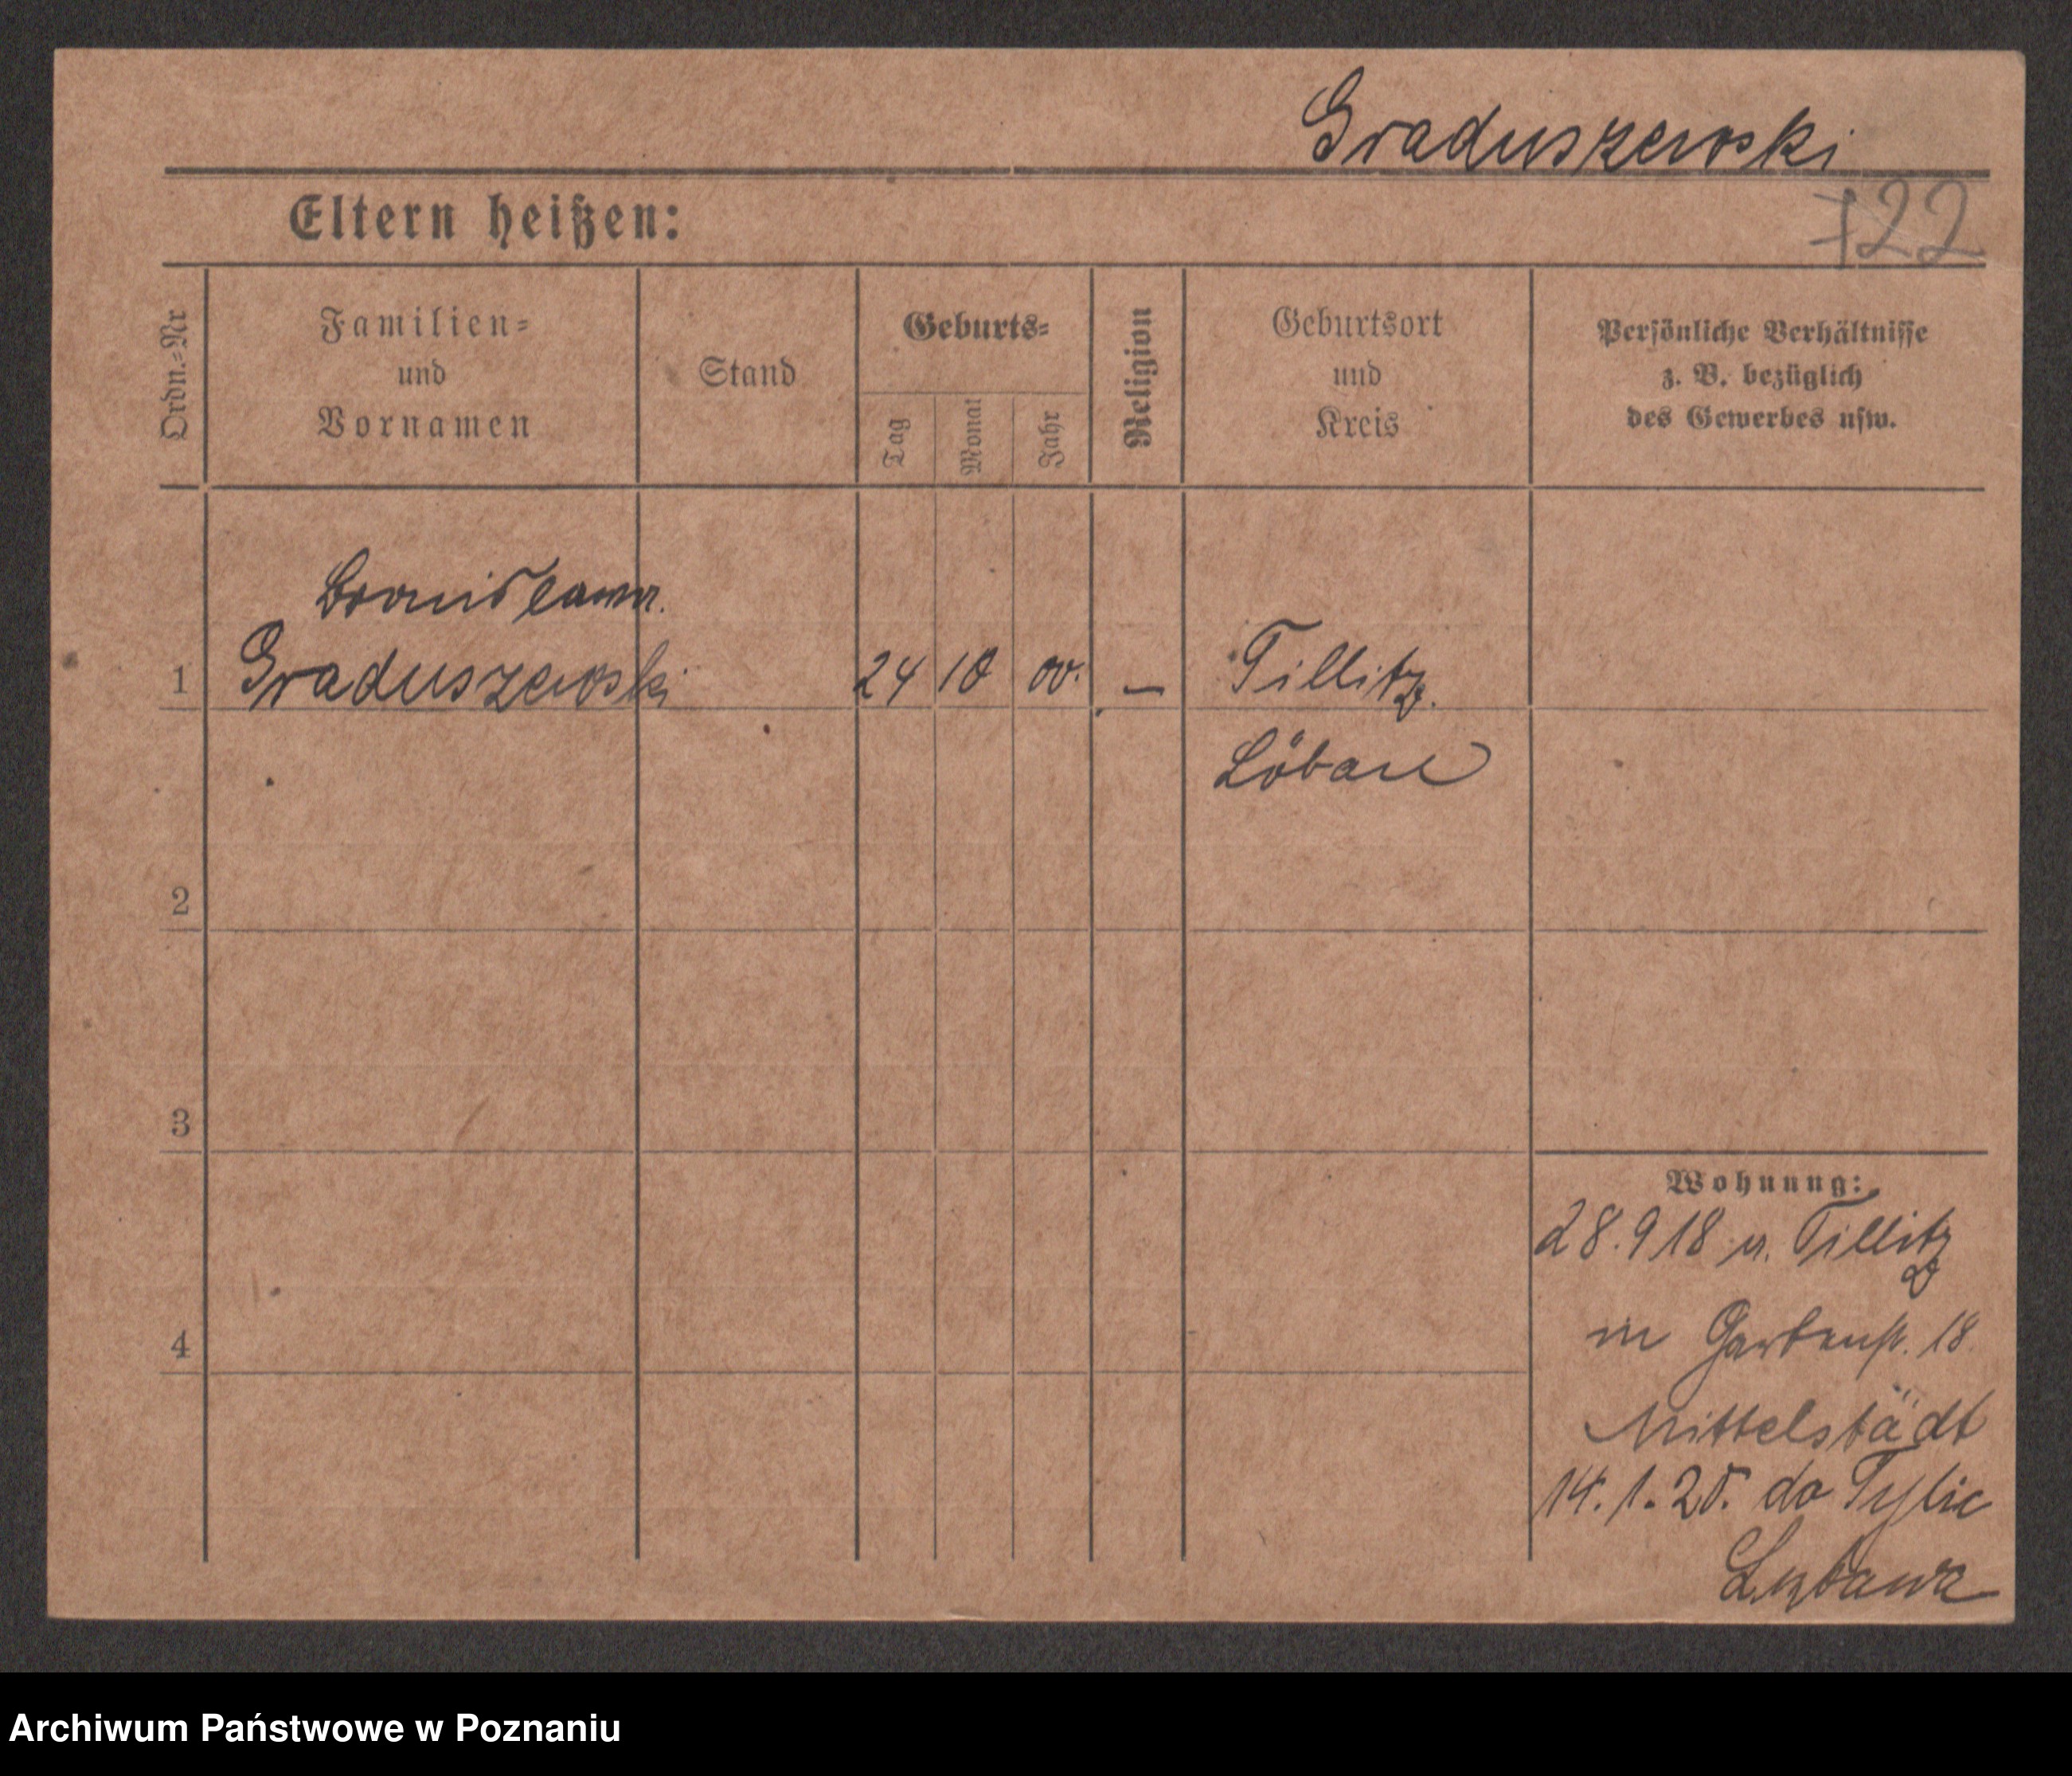 Graduszewski
722
Eltern heißen:
Ordn.=Nr
Familien=
und
Vornamen
Stand
Geburts=
Tag
Monat
Jahr
Religion
Geburtsort
und
Kreis
Persönliche Verhältnisse
z. B. bezüglich
des Gewerbes usw.
Bronislaw
1 Graduszewski 24 10 00. — Tillitz.
Löbau
2
3
4
Wohnung:
28.9 18 v. Tillitz
in Gartenstr. 18
Mittelstädt
14.1.20. do Tylic
Lubawa
Archiwum Państwowe w Poznaniu